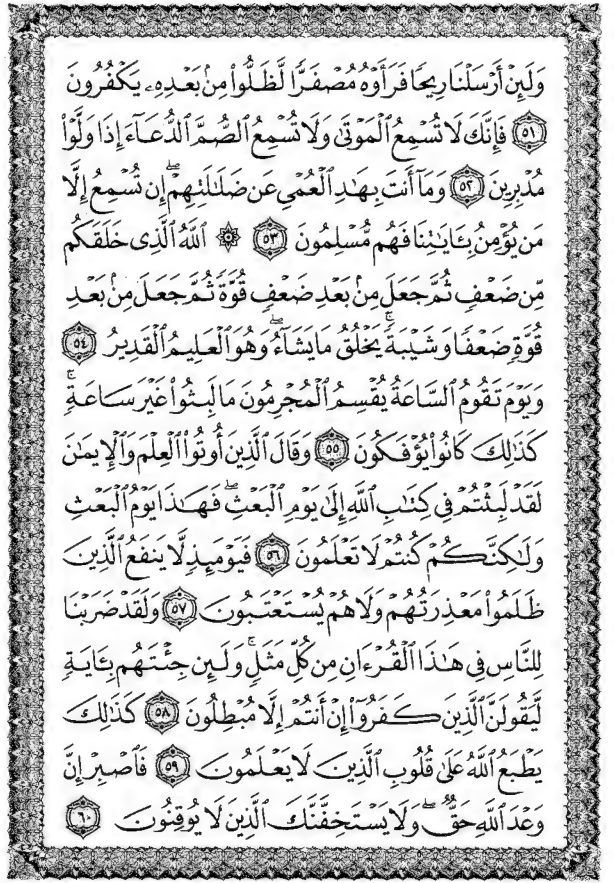 وَلَئِنْ أَرْسَلْنَا رِيحًا فَرَأَوْهُ مُصْفَرًّا لَّظَلُّوا۟ مِنۢ بَعْدِهِۦ يَكْفُرُونَ
٥١ فَإِنَّكَ لَا تُسْمِعُ ٱلْمَوْتَىٰ وَلَا تُسْمِعُ ٱلصُّمَّ ٱلدُّعَآءَ إِذَا وَلَّوْا۟
مُدْبِرِينَ ٥٢ وَمَآ أَنتَ بِهَٰدِ ٱلْعُمْىِ عَن ضَلَٰلَتِهِمْ ۖ إِن تُسْمِعُ إِلَّا
مَن يُؤْمِنُ بِـَٔايَٰتِنَا فَهُم مُّسْلِمُونَ ٥٣ ۞ ٱللَّهُ ٱلَّذِى خَلَقَكُم
مِّن ضَعْفٍ ثُمَّ جَعَلَ مِنۢ بَعْدِ ضَعْفٍ قُوَّةً ثُمَّ جَعَلَ مِنۢ بَعْدِ
قُوَّةٍ ضَعْفًا وَشَيْبَةً ۚ يَخْلُقُ مَا يَشَآءُ ۖ وَهُوَ ٱلْعَلِيمُ ٱلْقَدِيرُ ٥٤
وَيَوْمَ تَقُومُ ٱلسَّاعَةُ يُقْسِمُ ٱلْمُجْرِمُونَ مَا لَبِثُوا۟ غَيْرَ سَاعَةٍ ۚ
كَذَٰلِكَ كَانُوا۟ يُؤْفَكُونَ ٥٥ وَقَالَ ٱلَّذِينَ أُوتُوا۟ ٱلْعِلْمَ وَٱلْإِيمَٰنَ
لَقَدْ لَبِثْتُمْ فِى كِتَٰبِ ٱللَّهِ إِلَىٰ يَوْمِ ٱلْبَعْثِ ۖ فَهَٰذَا يَوْمُ ٱلْبَعْثِ
وَلَٰكِنَّكُمْ كُنتُمْ لَا تَعْلَمُونَ ٥٦ فَيَوْمَئِذٍ لَّا يَنفَعُ ٱلَّذِينَ
ظَلَمُوا۟ مَعْذِرَتُهُمْ وَلَا هُمْ يُسْتَعْتَبُونَ ٥٧ وَلَقَدْ ضَرَبْنَا
لِلنَّاسِ فِى هَٰذَا ٱلْقُرْءَانِ مِن كُلِّ مَثَلٍ ۚ وَلَئِن جِئْتَهُم بِـَٔايَةٍ
لَّيَقُولَنَّ ٱلَّذِينَ كَفَرُوٓا۟ إِنْ أَنتُمْ إِلَّا مُبْطِلُونَ ٥٨ كَذَٰلِكَ
يَطْبَعُ ٱللَّهُ عَلَىٰ قُلُوبِ ٱلَّذِينَ لَا يَعْلَمُونَ ٥٩ فَٱصْبِرْ إِنَّ
وَعْدَ ٱللَّهِ حَقٌّ ۖ وَلَا يَسْتَخِفَّنَّكَ ٱلَّذِينَ لَا يُوقِنُونَ ٦٠